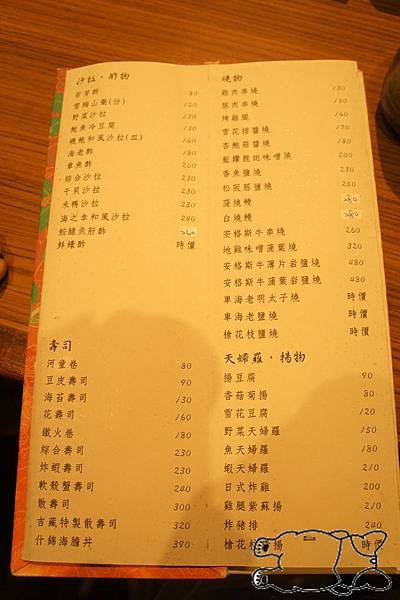 沙拉・酢物
岩芽酢 80
雪梅山藥(份) 120
野菜沙拉 120
鮑魚冷豆腐 130
機鮑和風沙拉(皿) 160
海老酢 180
章魚酢 260
綜合沙拉 230
干貝沙拉 230
米鴨沙拉 230
海之幸和風沙拉 240
鮟鱇魚肝酢 260
鮮蠔酢 時價
壽司
河童卷 80
豆皮壽司 90
海苔壽司 130
花壽司 160
鐵火卷 180
綜合壽司 230
炸蝦壽司 230
軟殼蟹壽司 240
散壽司 300
吉藏特製散壽司 320
什錦海膽丼 390
燒物
雞肉串燒 130
豚肉串燒 130
烤雞腿 160
雪花揚醬燒 170
杏鮑菇醬燒 200
藍鑽龍斑味噌燒 200
香魚鹽燒 230
松阪豚鹽燒 250
蒲燒鰻 280
白燒鰻 280
安格斯牛串燒 260
地雞味噌蒲葉燒 320
安格斯牛薄片岩鹽燒 480
安格斯牛蒲葉岩鹽燒 480
車海老明太子燒 時價
車海老鹽燒 時價
槍花枝鹽燒 時價
天婦羅・揚物
揚豆腐 90
香菇菊揚 80
雪花豆腐 120
野菜天婦羅 150
魚天婦羅 180
蝦天婦羅 210
日式炸雞 200
雞腿紫蘇揚 210
炸豬排 240
槍花枝 揚 時價